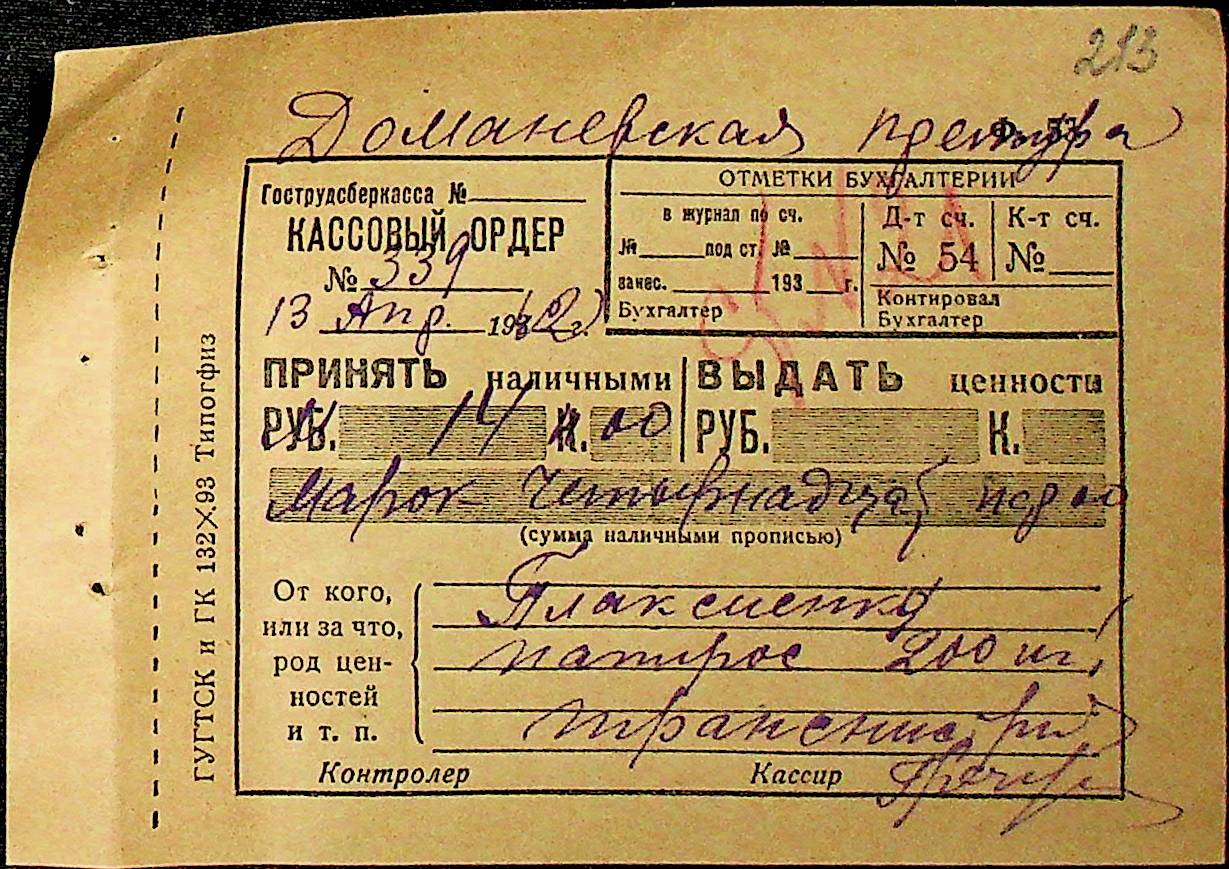 213
Доманевская претура
Ф. 53
Гострудсберкасса №
КАССОВЫЙ ОРДЕР
№ 339
13 Апр. 1942 г.
ОТМЕТКИ БУХГАЛТЕРИИ
в журнал по сч.
№ под ст. №
занес. 193 г.
Бухгалтер
Д-т сч.
№ 54
К-т сч.
№
Контировал
Бухгалтер
ПРИНЯТЬ наличными
РУБ. 14 К. 00
ВЫДАТЬ ценности
РУБ. К.
Марок Четырнадцать 00
(сумма наличными прописью)
От кого,
или за что,
род цен-
ностей
и т. п.
папирос 200 шт.
Контролер
Кассир
ГУГТСК и ГК 132×93 Типогфиз